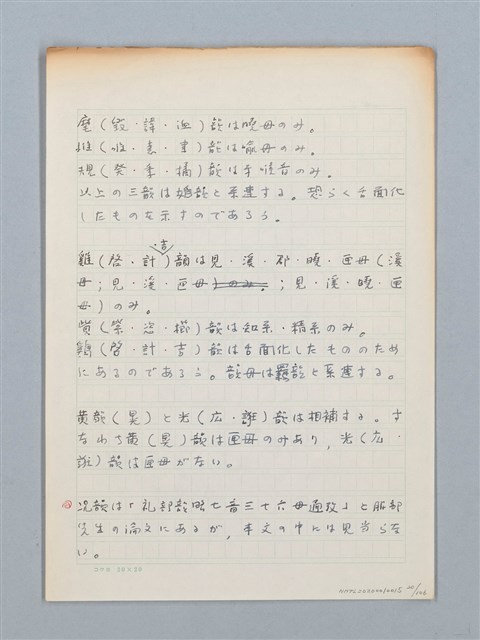 麾(毀・諱・血)韻は暁母のみ。
惟(唯・恚・聿)韻は喩母のみ。
規(癸・季・橘)韻は牙喉音のみ。
以上の三韻は媯韻と系連する。恐らく舌面化
したものを示すのであろう。
・吉
雞(啓・計)韻は見・溪・郡・暁・匣母(溪
母;見・溪・匣母)のみ。;見・溪・暁・匣
母)のみ。
貲(紫・恣・櫛)韻は知系・精系のみ。
鶏(啓・計・吉)韻は舌面化したもののため
にあるのであろう。韻母は羈韻と系連する。
黄韻(晃)と光(広・誑)韻は相補する。す
なわち黄(晃)韻は匣母のみあり,光(広・
誑)韻は匣母がない。
況韻は「礼部韻略七音三十六母通攷」と服部
先生の論文にあるが,本文の中には見当らな
い。
コクヨ 20×20